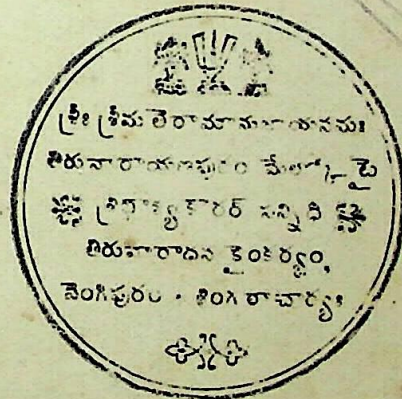 శ్రీః శ్రీమతెరామానుజాయనమః
తిరునారాయణపురం మేల్కోటై
శ్రీభాష్యకారర్ సన్నిధి
తిరువారాదన కైంకర్యం,
నెంగిపురం - శింగరాచార్యః